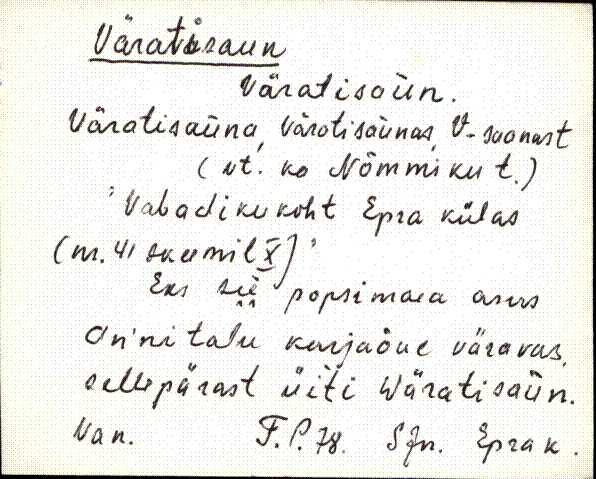 Väratisaun
Väratisaün.
Väratisaüna, Väratisaünas, V-saonast
(vt. ka Nõmmiku t.)
"Vabadikukoht Epra külas
(nr. 41 skeemil X)"
Eks sii popsimaea asus
On'ni talu karjaõue väravas,
sellepärast üiti Wäratisaün.
Van. F.P. 78. Sjn. Epra k.